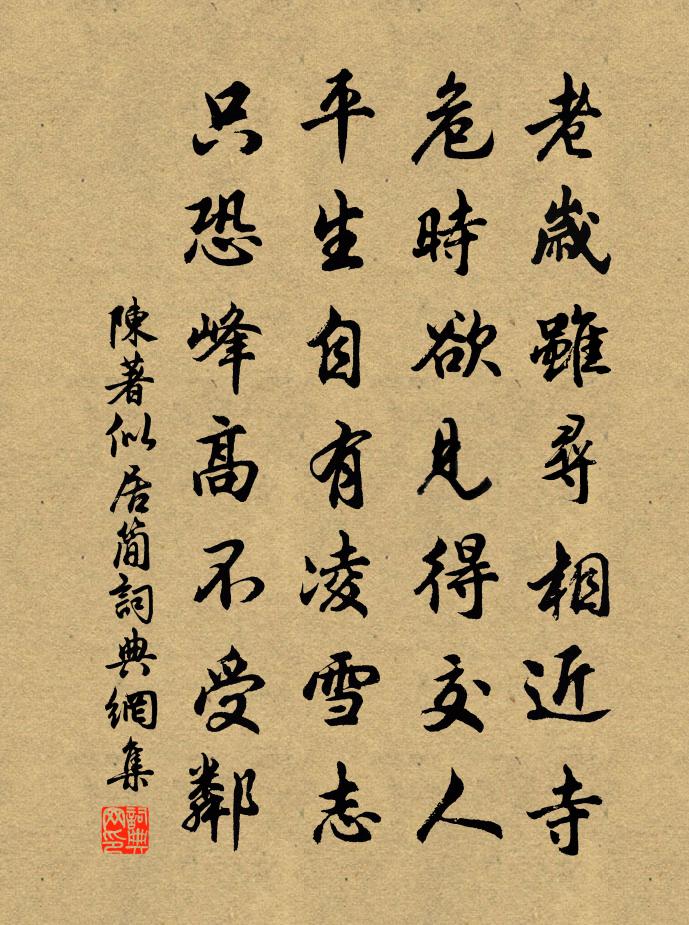 老歲雖尋相近寺
危時欲見得交人
平生自有凌雪志
只恐峰高不受鄰
陳著似居簡詞典網集
詞典网印